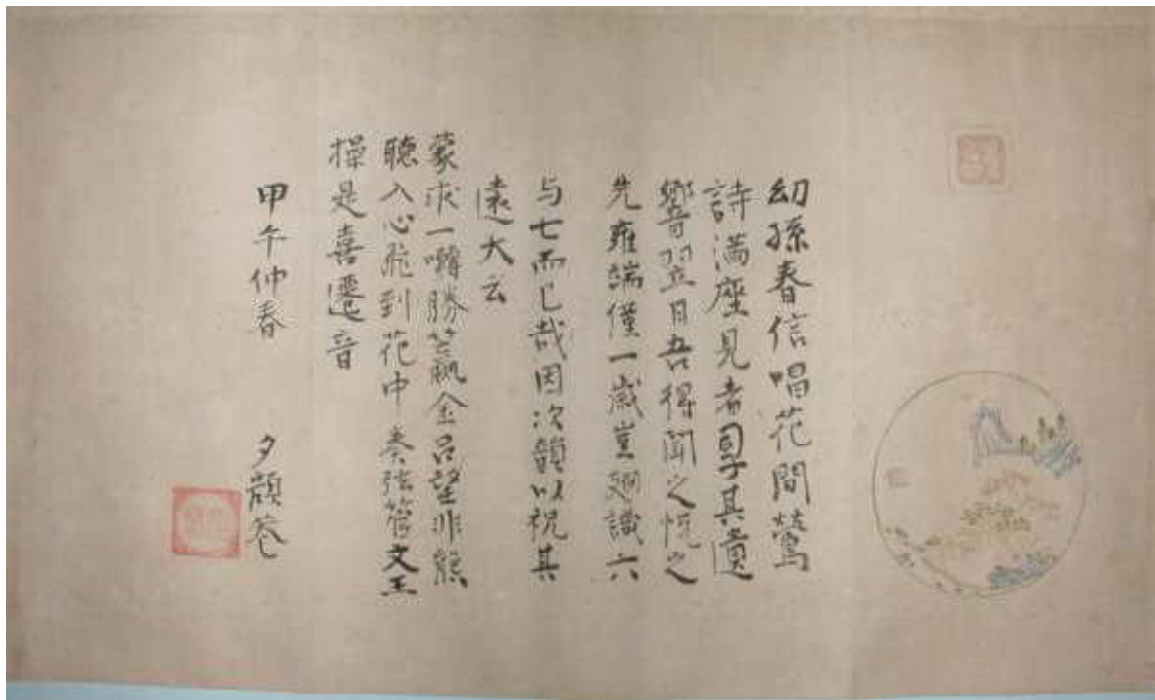 幻孫春信唱花間鶯
詩満座見者目其遺
響翌日吾得聞之悦之
先雍端僅一歳豈翅識六
与七而已哉因次韻以祝其
遠大云
蒙求一囀勝籯金呂望非熊
聴入心飛到花中奏弦管文王
操是喜遷音
甲午仲春
夕顔巷